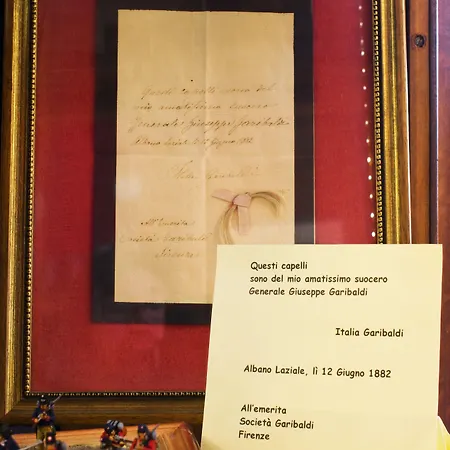 Questi capelli sono del
mio amatissimo suocero
Generale Giuseppe Garibaldi
Albano Laziale, lì 12 Giugno 1882
Italia Garibaldi
All'Emerita
Società Garibaldi
Firenze
Questi capelli
sono del mio amatissimo suocero
Generale Giuseppe Garibaldi
Italia Garibaldi
Albano Laziale, lì 12 Giugno 1882
All'emerita
Società Garibaldi
Firenze